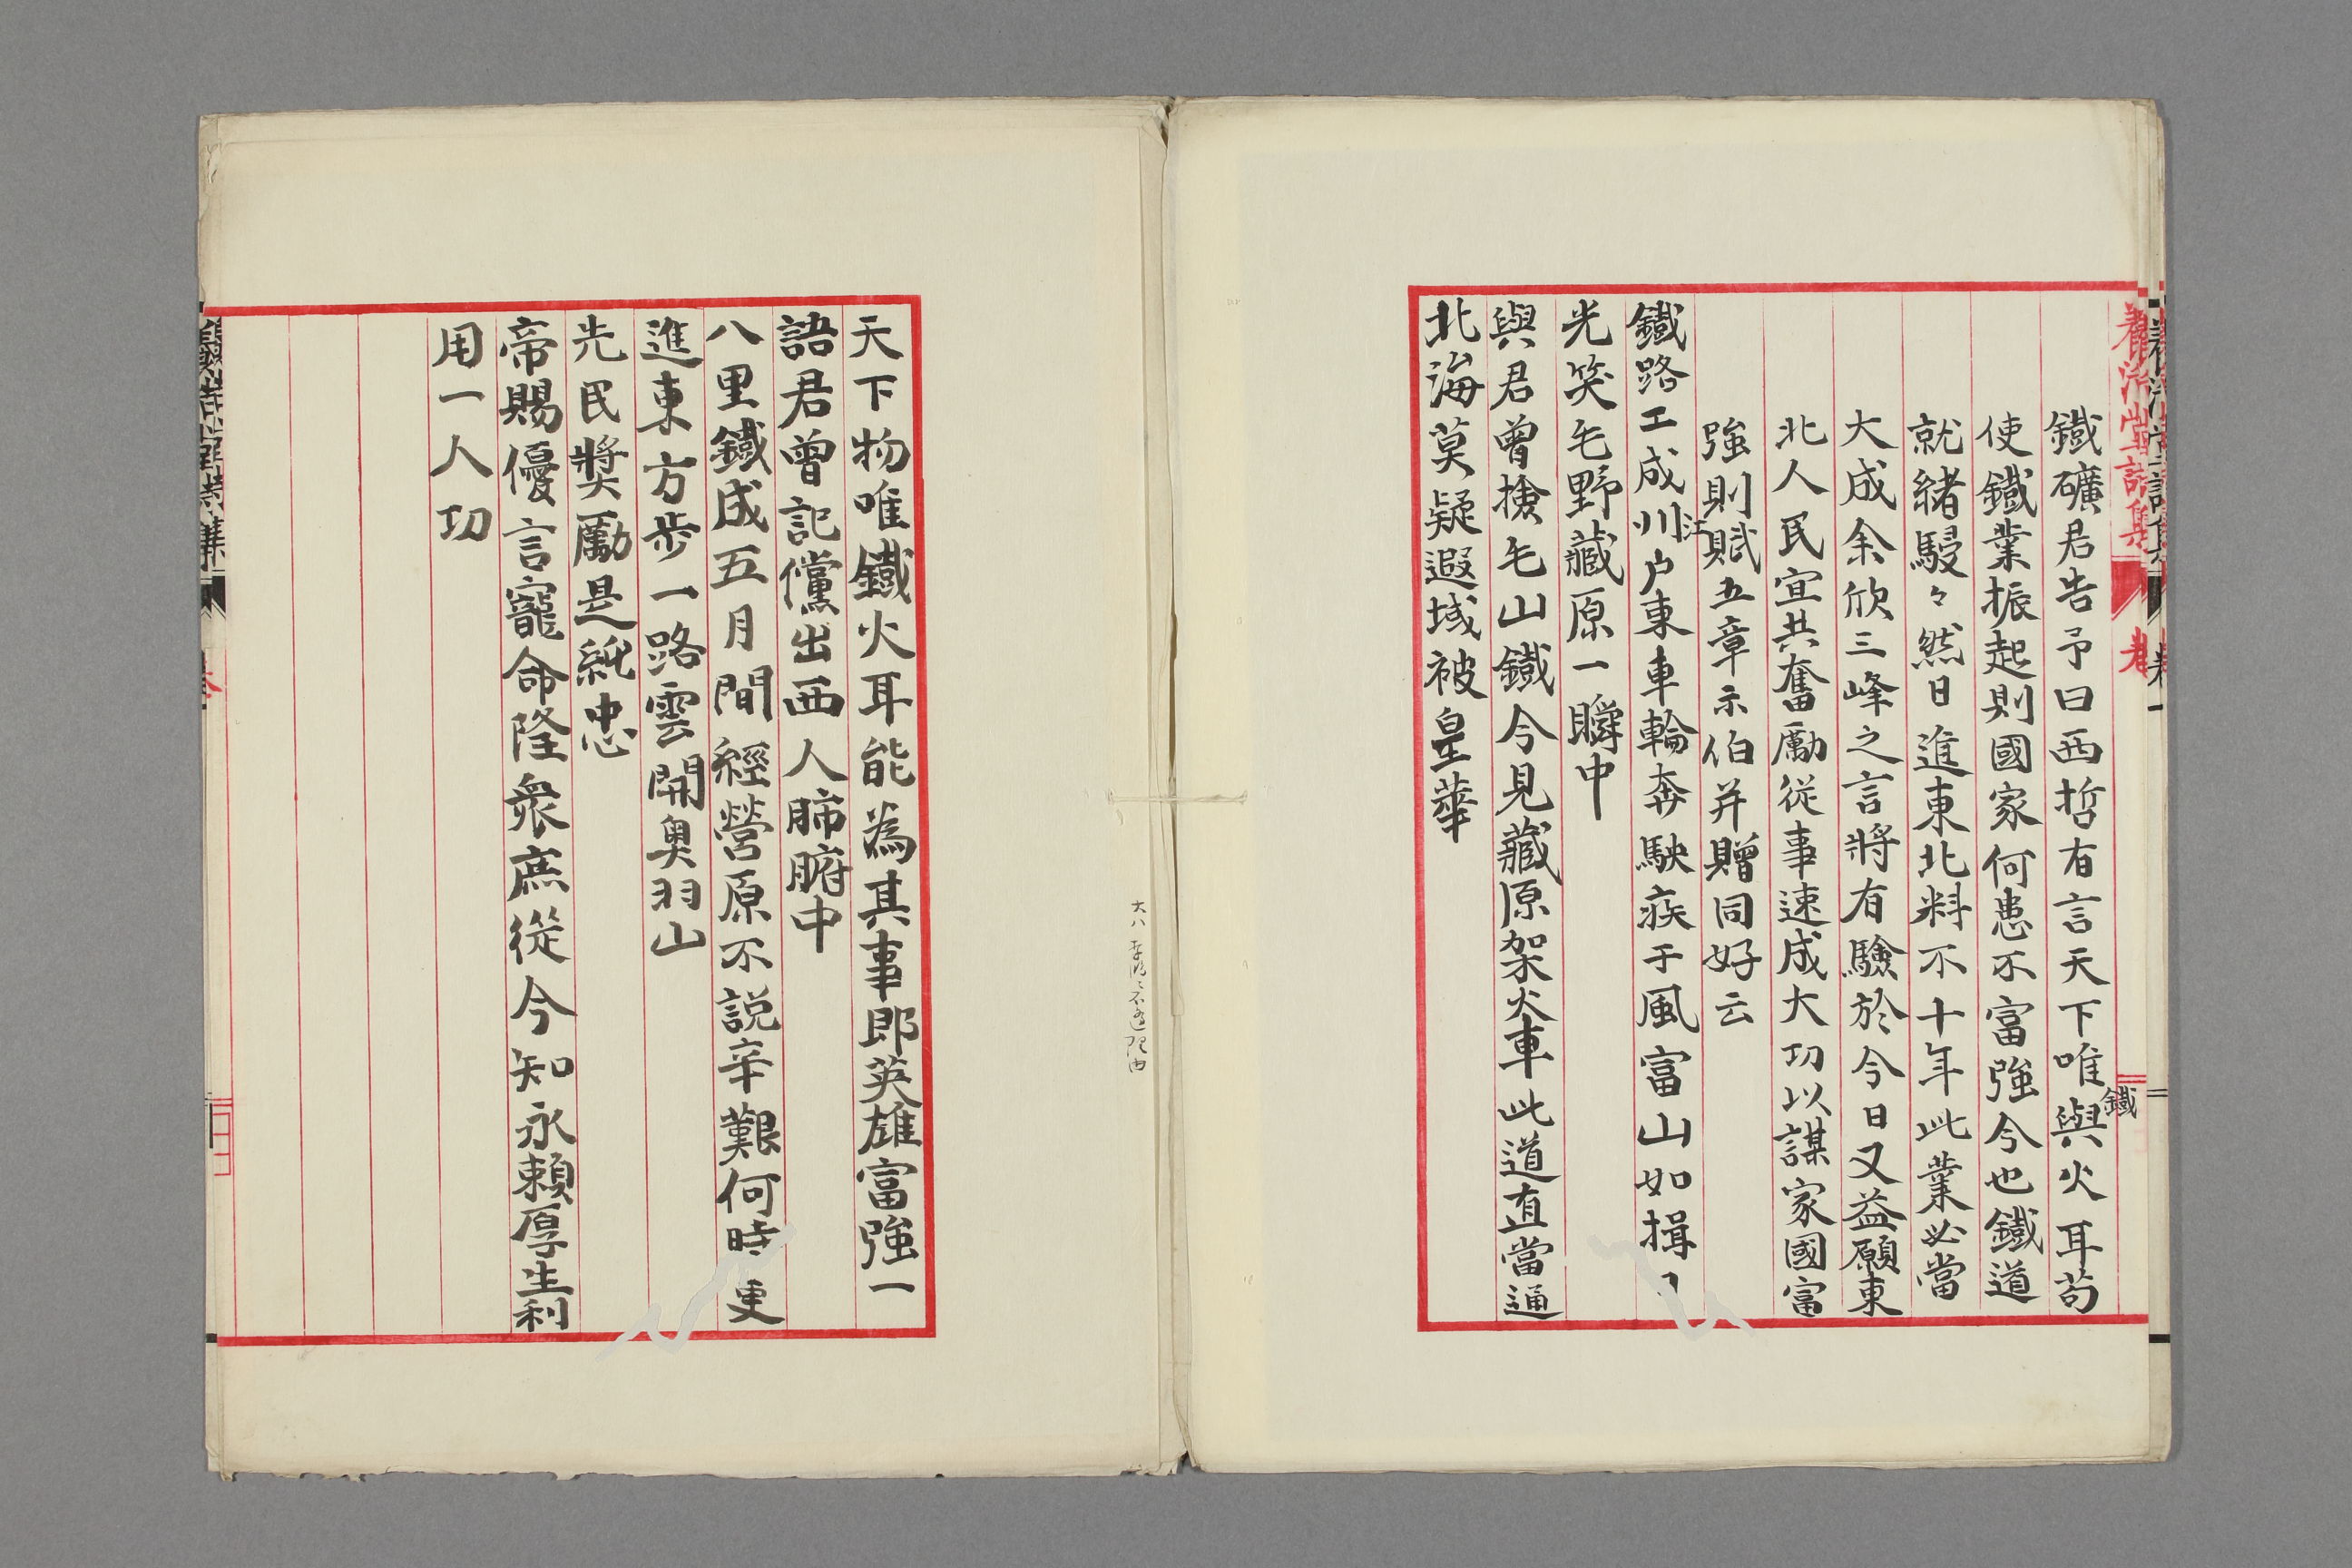 鐵礦君告予曰西哲有言天下唯鐵與火耳苟
使鐵業振起則國家何患不富強今也鐵道
就緒駸々然日進東北料不十年此業必當
大成余欣三峰之言將有驗於今日又益願東
北人民宜共奮勵從事速成大功以謀家國富
強則賦五章示伯并贈同好云
鐵路工成川江戶東車輪奔駛疾于風富山如揖
光笑毛野藏原一瞬中
與君曾撿毛山鐵今見藏原架火車此道直當通
北海莫疑遐域被皇華
天下物唯鐵火耳能為其事郎英雄富強一
語君曾記儻出西人肺腑中
八里鐵成五月間經營原不説辛艱何時更
進東方步一路雲開奥羽山
先民獎勵是純忠
帝賜優言寵命隆衆庶從今知永賴厚生利
用一人功